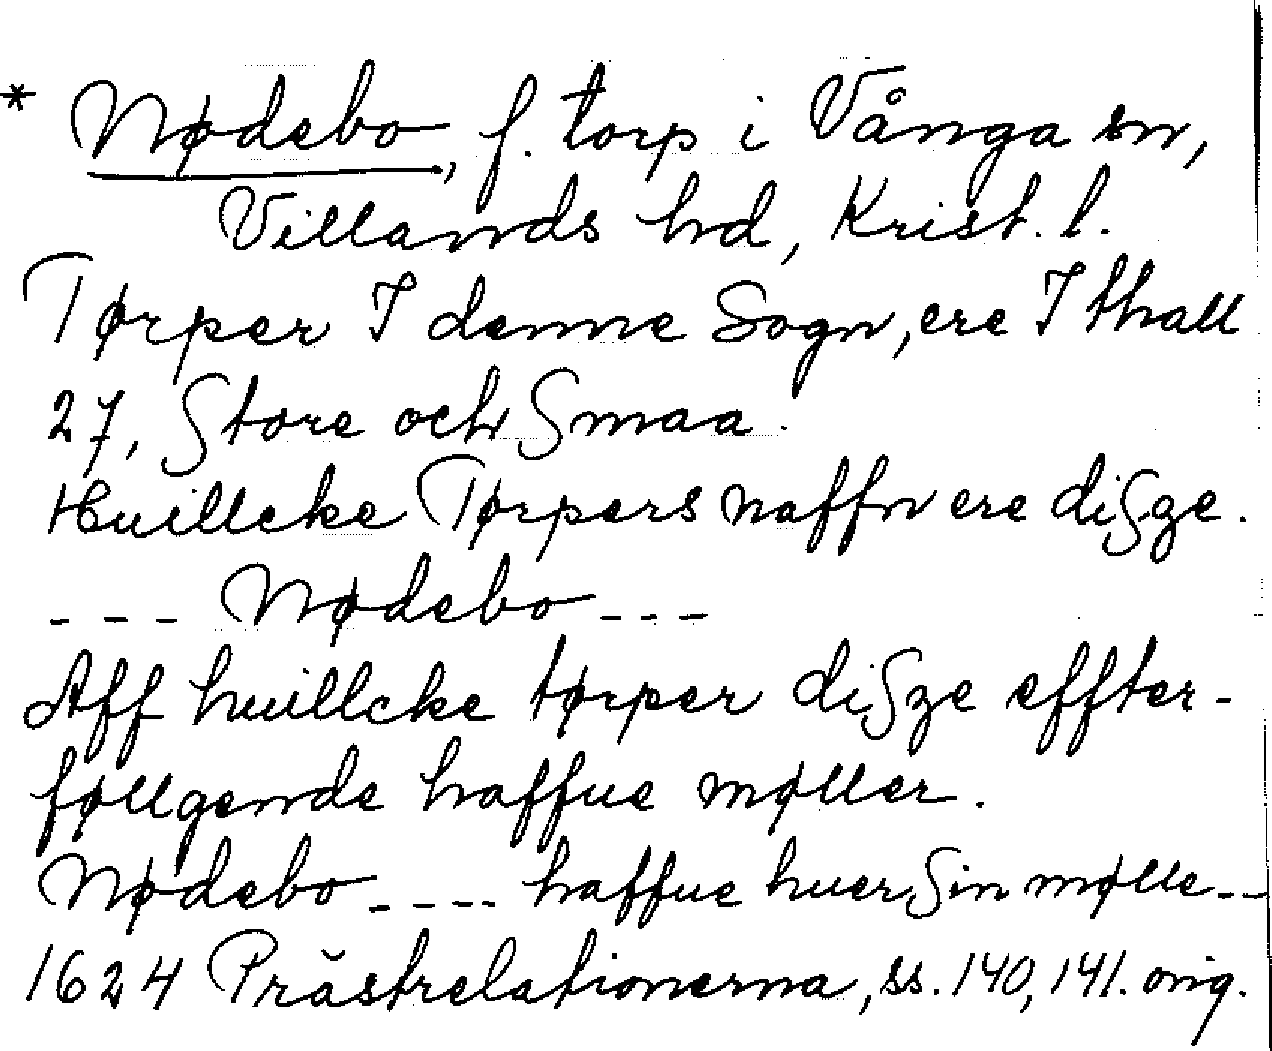 * Nødebo, f. torp i Vånga sn,
Villands hd, Krist. l.
Tørper I denne Sogn, ere I thall
27, Store och Smaa.
Huillcke Tørpers naffn ere disze.
--- Nødebo ---
Aff huillcke tørper disze effter-
føllgende haffue møller.
Nødebo ---- haffue huer sin mølle --
1624 Prästrelationerna, ss. 140, 141. orig.